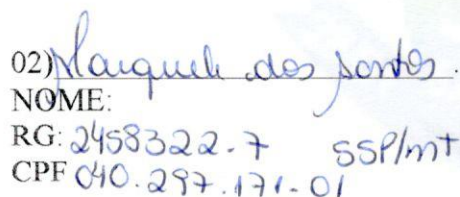 02) Marquele dos Santos.
NOME:
RG: 2458322-7 SSP/MT
CPF 040.297.171-01